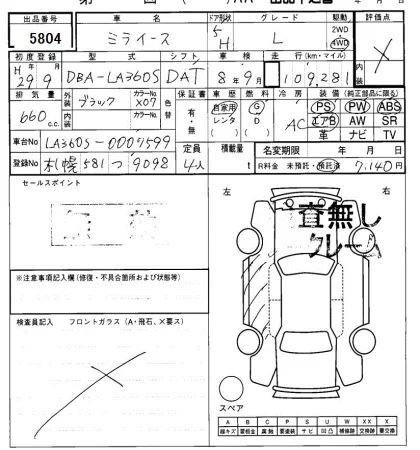 出品番号 車名 ドア形状 グレード 駆動 評価点
5804 ミライース 5 H L 2WD 4WD X
初度登録 型式 シフト 車検 走行(km・マイル) 内装
H 29年9月 DBA-LA360S DAT 8年9月 109,281
排気量 外装 カラーNo. 色替 保証書 車歴 燃料 冷房 装備(純正部品に限る)
660 c.c. ブラック X07 有・無 自家用 レンタ ( ) G D ( ) AC PS PW ABS
内装 カラーNo. エアB AW SR
革 ナビ TV
車台No LA360S-0007599 定員 積載量 名変期限 年 月 日
登録No 札幌 581 つ 9098 4人 t R料金 未預託・預託済 7,140円
セールスポイント
左 右
査無し
クレーム
※注意事項記入欄(修復・不具合箇所および状態等)
検査員記入 フロントガラス(A・飛石、X要ス)
スペア
A B C P S U W X XX
線キズ 要板金 腐蝕 要塗装 サビ 凹凸 補修跡 交換跡 要交換